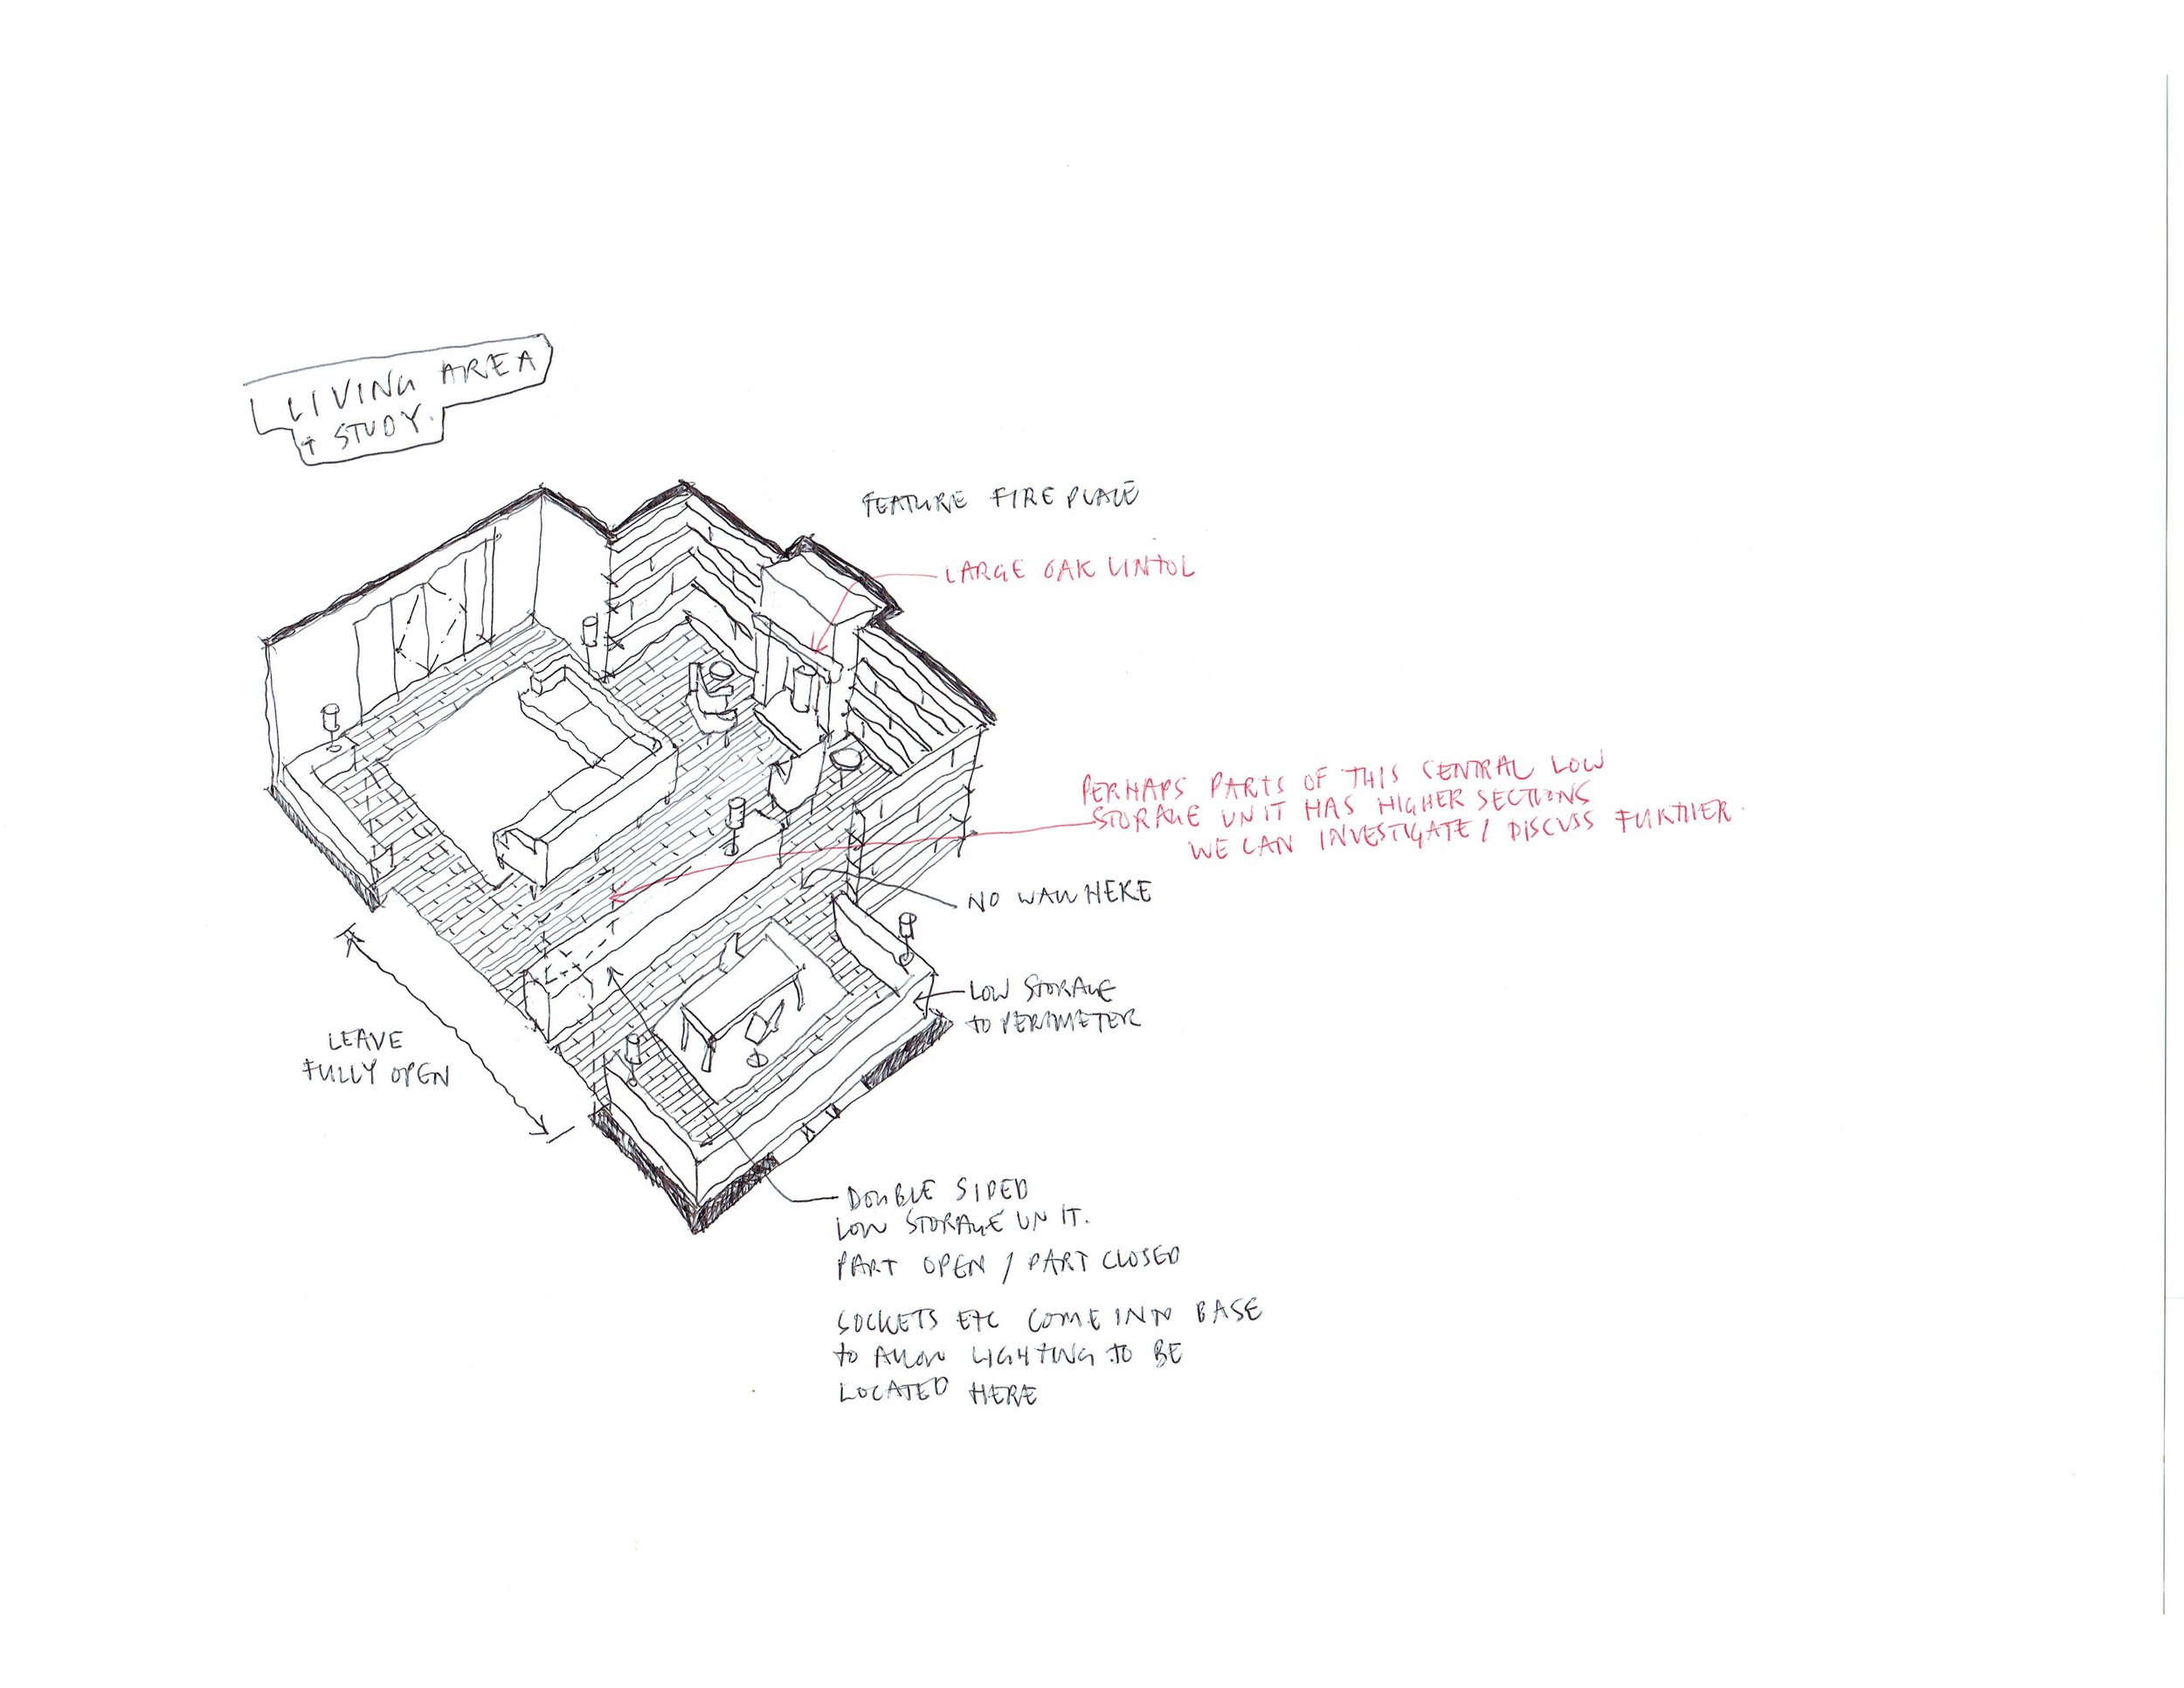 LIVING AREA
+ STUDY.
FEATURE FIRE PLACE
LARGE OAK LINTOL
PERHAPS PARTS OF THIS CENTRAL LOW
STORAGE UNIT HAS HIGHER SECTIONS
WE CAN INVESTIGATE / DISCUSS FURTHER.
NO WALL HERE
LOW STORAGE
TO PERIMETER
LEAVE
FULLY OPEN
DOUBLE SIDED
LOW STORAGE UNIT.
PART OPEN / PART CLOSED
SOCKETS ETC COME INN BASE
TO ALLOW LIGHTING TO BE
LOCATED HERE